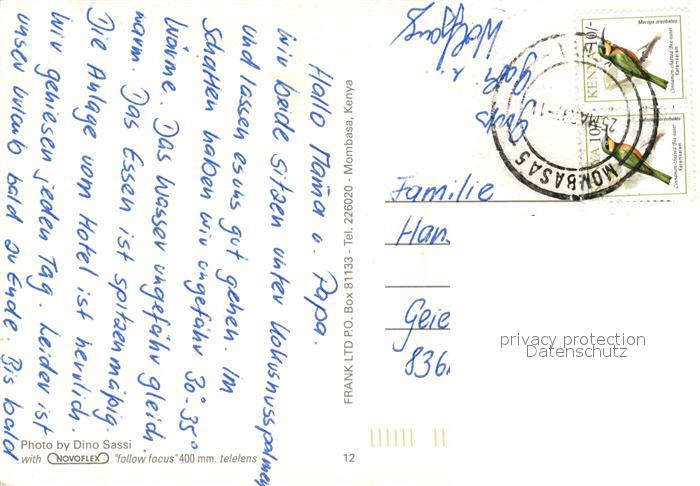 Hallo Mama u. Papa.
wir beide sitzen unter Kokusnusspalmen
und lassen es uns gut gehen. Im
Schatten haben wir ungefähr 30-35°
Wärme. Das Wasser ungefähr gleich
warm. Das Essen ist spitzenmäßig.
Die Anlage vom Hotel ist herrlich.
Wir geniesen jeden Tag. Leider ist
unser Urlaub bald zu Ende. Bis bald
Gruß
Gabi u.
Wolfgang
Familie
Han
Geie
836
FRANK LTD P.O. Box 81133 - Tel. 226020 - Mombasa, Kenya
Photo by Dino Sassi
with NOVOFLEX "follow focus" 400 mm. telelens
12
KENYA 10/-
Merops oreobates
Cinnamon-chested Bee-eater
Keremkeram
10/-
Merops oreobates
Cinnamon-chested Bee-eater
Keremkeram
MOMBASA
privacy protection
Datenschutz